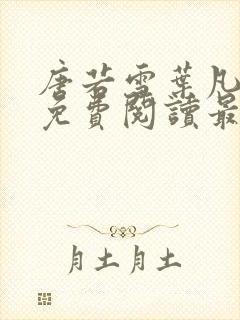 唐若雪葉凡
免費閱讀最
月土月土